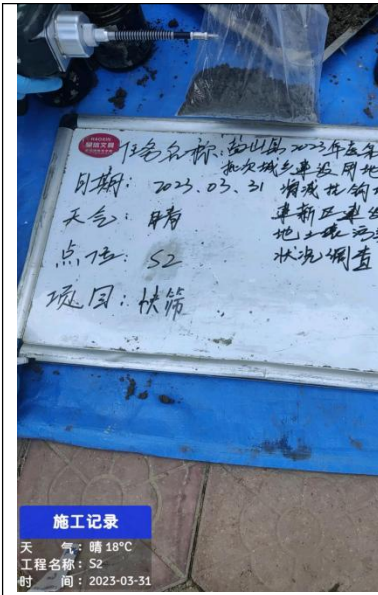 任务名称:盐山县2023年度第
批次城乡建设用地
日期:2023.03.31 增减挂钩
天气:晴 建新区建设
地土壤污染
点位:S2 状况调查
项目:快筛
施工记录
天 气:晴 18°C
工程名称:S2
时 间:2023-03-31